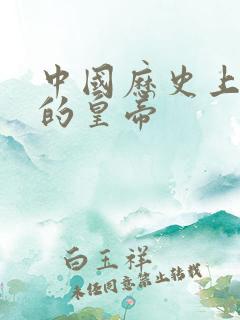 中國歷史上
的皇帝
白玉祥
未經同意禁止轉載